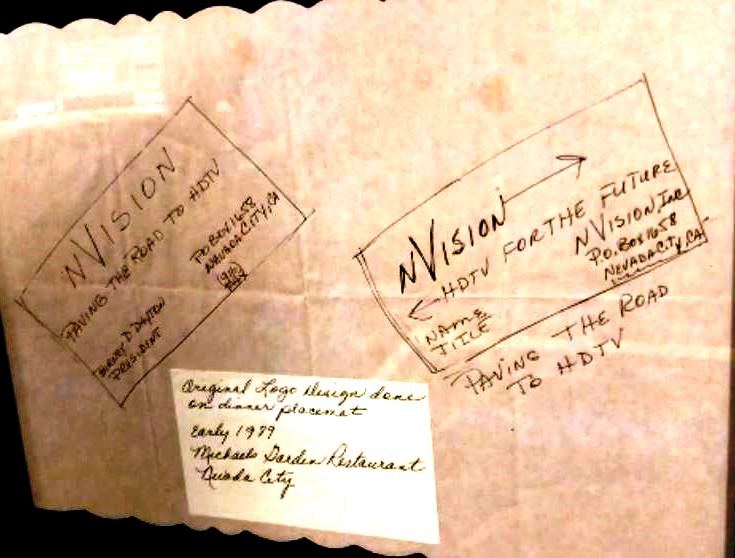 nVISION
PAVING THE ROAD TO HDTV
BIRNEY D. DAYTON
PRESIDENT
P.O. BOX 1658
NEVADA CITY, CA
(916)
nVISION
HDTV FOR THE FUTURE
NAME
TITLE
NVISION Inc
P.O. BOX 1658
NEVADA CITY, CA
PAVING THE ROAD
TO HDTV
Original Logo Design done
on dinner placemat
Early
Michaels Garden Restaurant
City